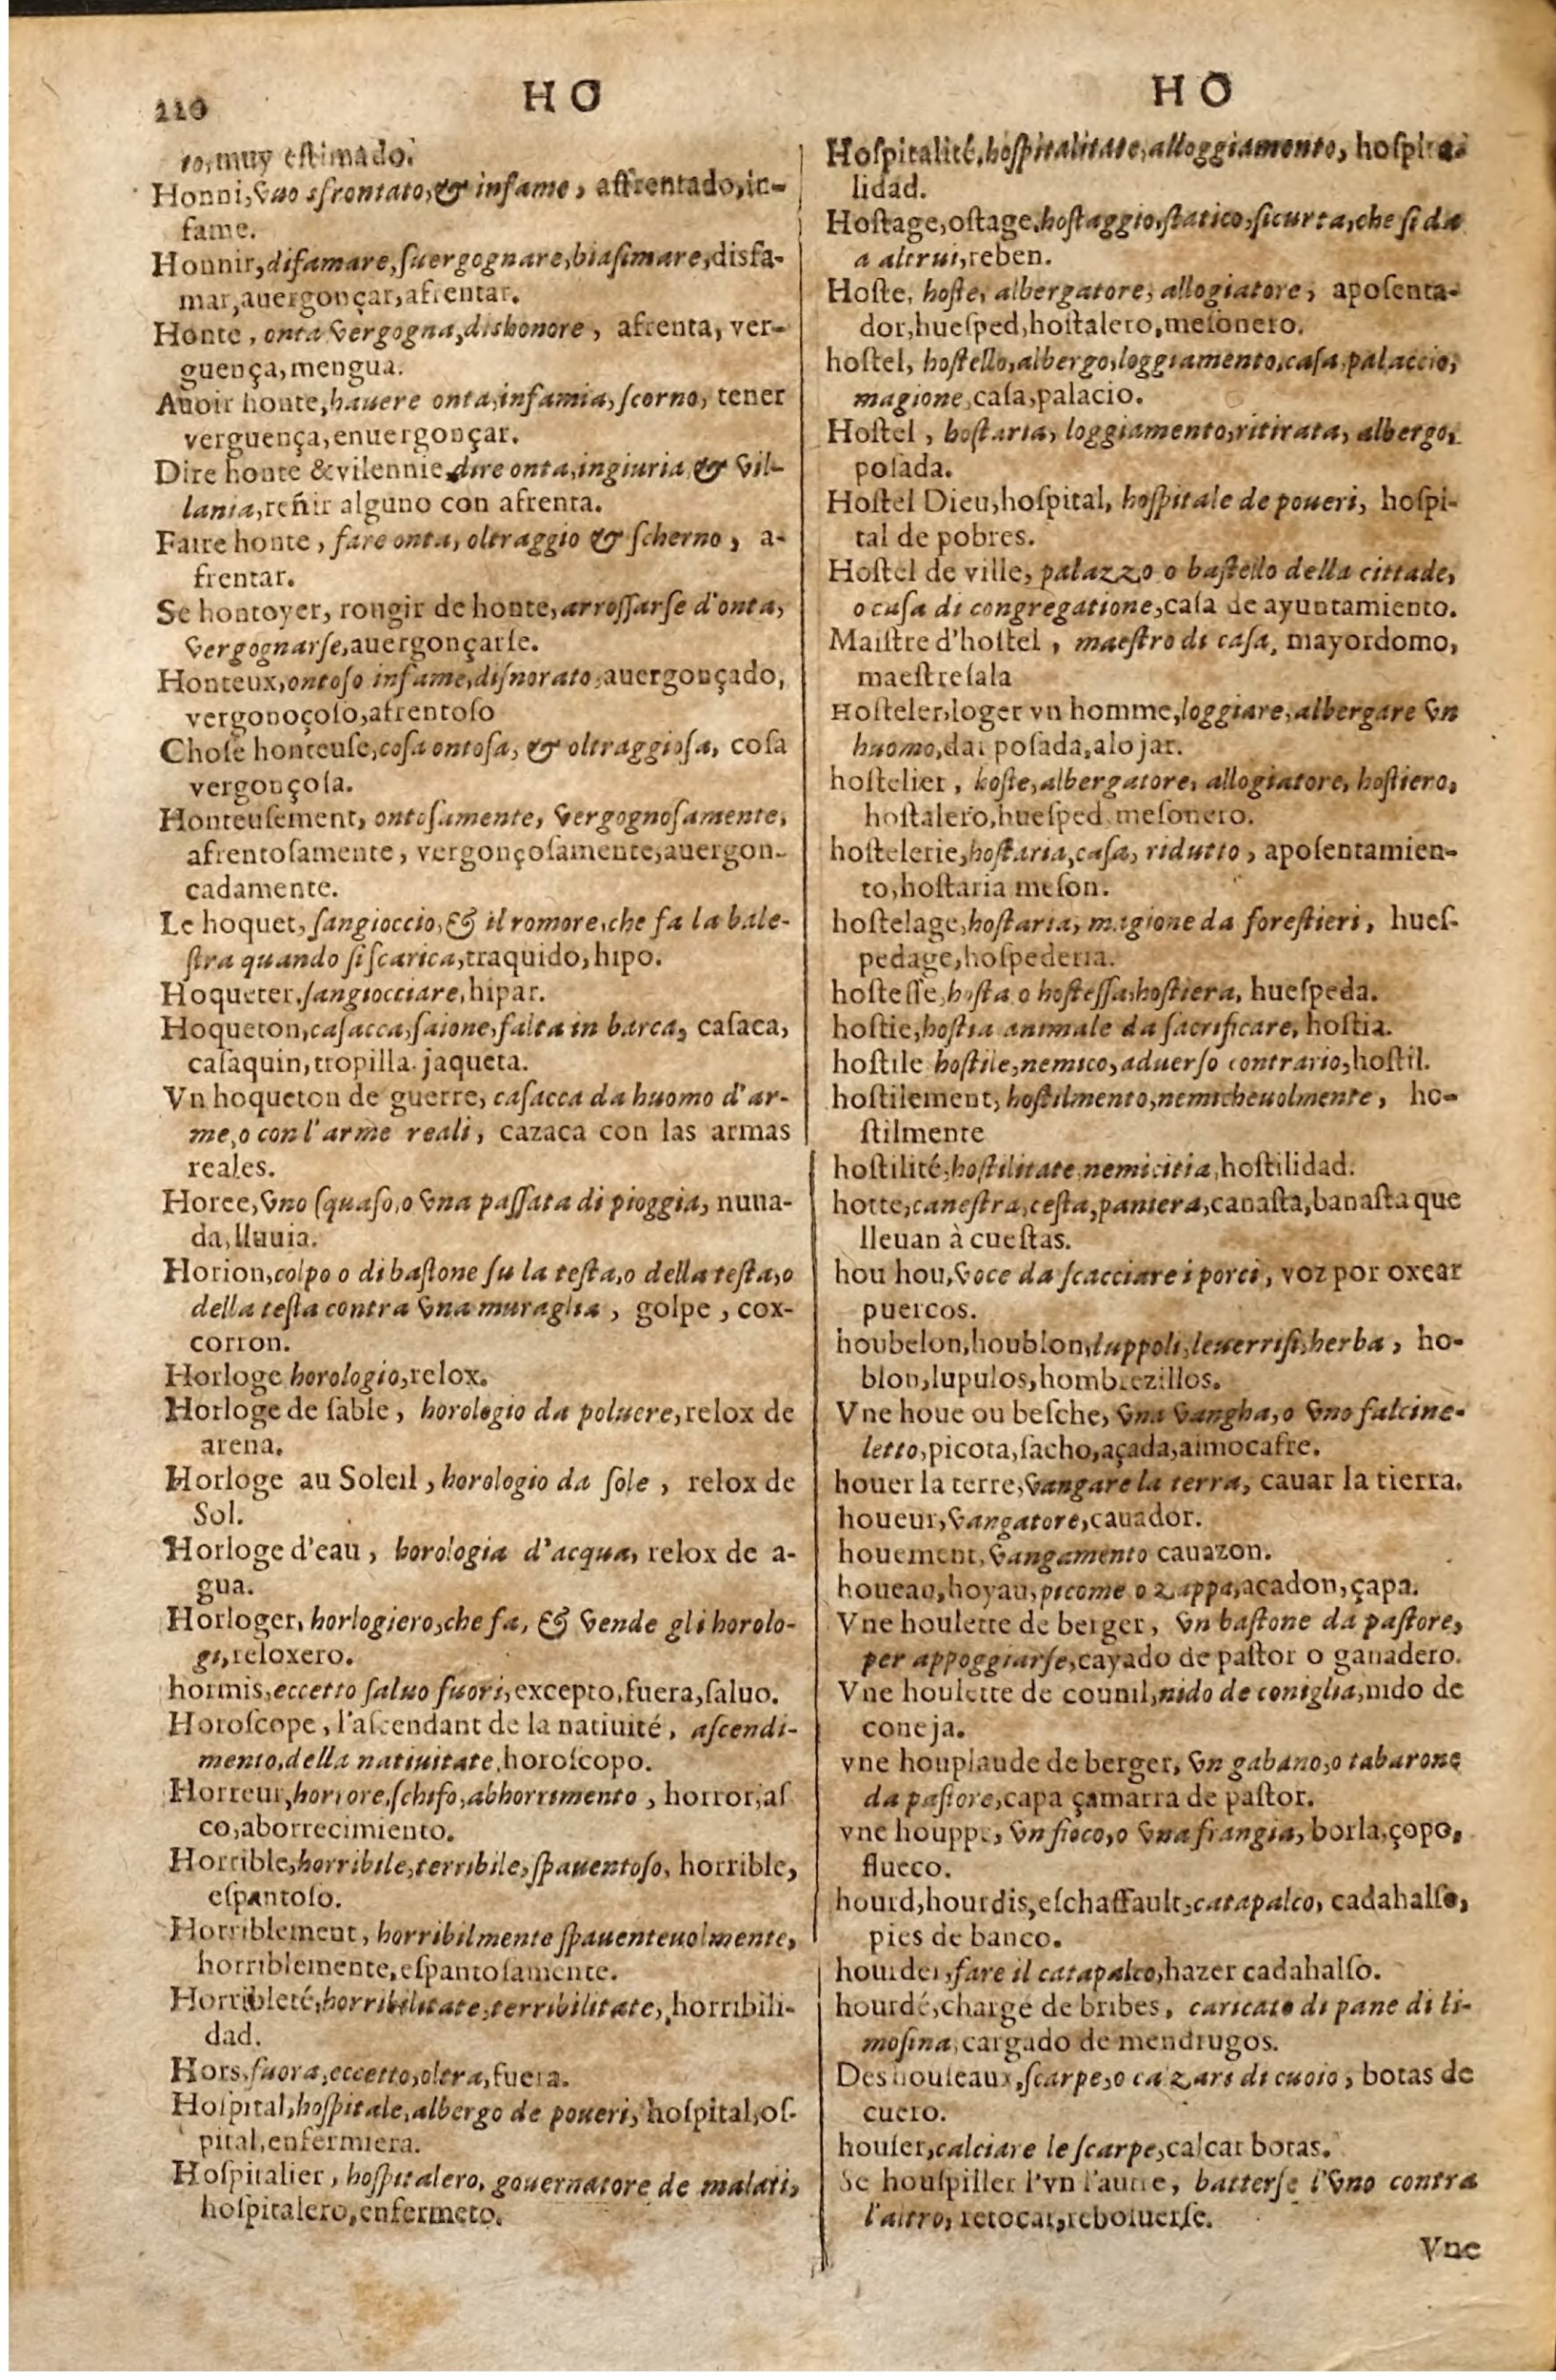 220
HO
HO
to, muy eſtimado.
Honni, vno sfrontato, & infame, affrentado, in-
fame.
Honnir, difamare, ſuergognare, biaſimare, disfa-
mar, auergonçar, afrentar.
Honte, onta vergogna, dishonore, afrenta, ver-
guença, mengua.
Auoir honte, hauere onta, infamia, ſcorno, tener
verguença, enuergonçar.
Dire honte & vilennie, dire onta, ingiuria & vil-
lania, reñir alguno con afrenta.
Faire honte, fare onta, oltraggio & ſcherno, a-
frentar.
Se hontoyer, rougir de honte, arroſſarſe d'onta,
vergognarſe, auergonçarſe.
Honteux, ontoſo infame, diſnorato, auergonçado,
vergonoçoſo, afrentoſo
Choſe honteuſe, coſa ontoſa, & oltraggioſa, coſa
vergonçoſa.
Honteuſement, ontoſamente, vergognoſamente,
afrentoſamente, vergonçoſamente, auergon-
cadamente.
Le hoquet, ſangioccio, & il romore, che fa la bale-
ſtra quando ſi ſcarica, traquido, hipo.
Hoqueter, ſangiocciare, hipar.
Hoqueton, caſacca, ſaione, ſalta in barca, caſaca,
caſaquin, tropilla. jaqueta.
Vn hoqueton de guerre, caſacca da huomo d'ar-
me, o con l'arme reali, cazaca con las armas
reales.
Horee, vno ſquaſo, o vna paſſata di pioggia, nuua-
da, lluuia.
Horion, colpo o di baſtone ſu la teſta, o della teſta, o
della teſta contra vna muraglia, golpe, cox-
corron.
Horloge horologio, relox.
Horloge de ſable, horologio da poluere, relox de
arena.
Horloge au Soleil, horologio da ſole, relox de
Sol.
Horloge d'eau, horologia d'acqua, relox de a-
gua.
Horloger, horlogiero, che fa, & vende gli horolo-
gi, reloxero.
hormis, eccetto ſaluo fuori, excepto, fuera, ſaluo.
Horoſcope, l'aſcendant de la natiuité, aſcendi-
mento, della natiuitate, horoſcopo.
Horreur, horrore, ſchifo, abhorrimento, horror, aſ
co, aborrecimiento.
Horrible, horribile, terribile, ſpauentoſo, horrible,
eſpantoſo.
Horriblement, horribilmente ſpauenteuolmente,
horriblemente, eſpantoſamente.
Horribleté, horribilitate, terribilitate, horribili-
dad.
Hors, fuora, eccetto, oltra, fuera.
Hoſpital, hoſpitale, albergo de poueri, hoſpital, oſ-
pital, enfermiera.
Hoſpitalier, hoſpitalero, gouernatore de malati,
hoſpitalero, enfermero.
Hoſpitalité, hoſpitalitate, alloggiamento, hoſpita-
lidad.
Hoſtage, oſtage, hoſtaggio, ſtatico, ſicurta, che ſi da
a altrui, reben.
Hoſte, hoſte, albergatore, allogiatore, apoſenta-
dor, hueſped, hoſtalero, meſonero.
hoſtel, hoſtello, albergo, loggiamento, caſa, palaccio,
magione, caſa, palacio.
Hoſtel, hoſtaria, loggiamento, ritirata, albergo,
poſada.
Hoſtel Dieu, hoſpital, hoſpitale de poueri, hoſpi-
tal de pobres.
Hoſtel de ville, palazzo o baſtello della cittade,
o caſa di congregatione, caſa de ayuntamiento.
Maiſtre d'hoſtel, maeſtro di caſa, mayordomo,
maeſtreſala
Hoſteler, loger vn homme, loggiare, albergare vn
huomo, dar poſada, alojar.
hoſtelier, hoſte, albergatore, allogiatore, hoſtiero,
hoſtalero, hueſped meſonero.
hoſtelerie, hoſtaria, caſa, ridutto, apoſentamien-
to, hoſtaria meſon.
hoſtelage, hoſtaria, magione da foreſtieri, hueſ-
pedage, hoſpederia.
hoſteſſe, hoſta o hoſteſſa, hoſtiera, hueſpeda.
hoſtie, hoſtia animale da ſacrificare, hoſtia.
hoſtile hoſtile, nemico, aduerſo contrario, hoſtil.
hoſtilement, hoſtilmento, nemicheuolmente, ho-
ſtilmente
hoſtilité, hoſtilitate, nemicitia, hoſtilidad.
hotte, caneſtra, ceſta, paniera, canaſta, banaſta que
lleuan à cueſtas.
hou hou, voce da ſcacciare i porci, voz por oxear
puercos.
houbelon, houblon, luppoli, leuerriſi, herba, ho-
blon, lupulos, hombrezillos.
Vne houe ou beſche, vna vangha, o vno falcine-
letto, picota, ſacho, açada, almocafre.
houer la terre, vangare la terra, cauar la tierra.
houeur, vangatore, cauador.
houement, vangamento cauazon.
houeau, hoyau, picome o zappa, acadon, çapa.
Vne houlette de berger, vn baſtone da paſtore,
per appoggiarſe, cayado de paſtor o ganadero.
Vne houlette de counil, nido de coniglia, nido de
coneja.
vne houplaude de berger, vn gabano, o tabarone
da paſtore, capa çamarra de paſtor.
vne houppe, vn fioco, o vna frangia, borla, çopo,
flueco.
hourd, hourdis, eſchaffault, catapalco, cadahalſo,
pies de banco.
hourder, fare il catapalco, hazer cadahalſo.
hourdé, chargé de bribes, caricato di pane di li-
moſina, cargado de mendrugos.
Des houſeaux, ſcarpe, o cazari di cuoio, botas de
cuero.
houſer, calciare le ſcarpe, calcar botas.
Se houſpiller l'vn l'autre, batterſe l'vno contra
l'altro, retocar, reboluerſe.
Vne